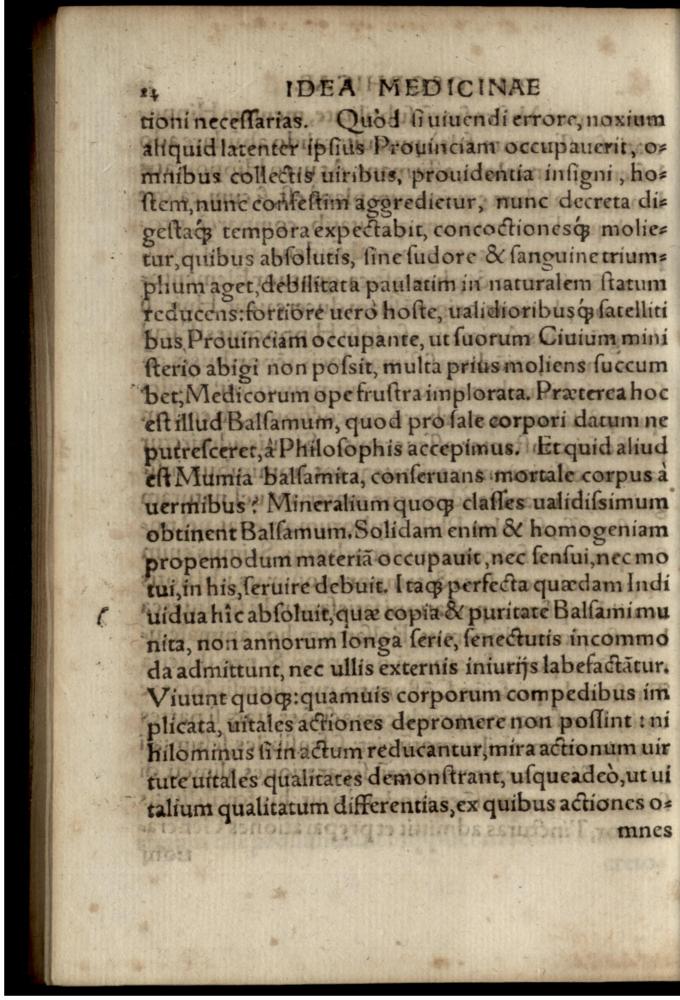 24 IDEA MEDICINAE
tioni neceſſarias. Quòd ſi uiuendi errore, noxium
aliquid latenter ipſius Prouinciam occupauerit, o⸗
mnibus collectis uiribus, prouidentia inſigni, ho⸗
ſtem, nunc confeſtim aggredietur, nunc decreta di⸗
geſtaq́; tempora expectabit, concoctionesq́; molie⸗
tur, quibus abſolutis, ſine ſudore & ſanguine trium⸗
phum aget, debilitata paulatim in naturalem ſtatum
reducens: fortiore uerò hoſte, ualidioribusq́; ſatelliti
bus, Prouinciam occupante, ut ſuorum Ciuium mini
ſterio abigi non poſsit, multa prius moliens ſuccum
bet, Medicorum ope fruſtra implorata. Præterea hoc
eſt illud Balſamum, quod pro ſale corpori datum ne
putreſceret, à Philoſophis accepimus. Et quid aliud
eſt Mumia balſamita, conſeruans mortale corpus à
uermibus? Mineralium quoq; claſſes ualidiſsimum
obtinent Balſamum. Solidam enim & homogeniam
propemodum materiã occupauit, nec ſenſui, nec mo
tui, in his, ſeruire debuit. Itaq; perfecta quædam Indi
uidua hîc abſoluit, quæ copia & puritate Balſami mu
nita, non annorum longa ſerie, ſenectutis incommo
da admittunt, nec ullis externis iniurijs labefactãtur.
Viuunt quoq;: quamuis corporum compedibus im
plicata, uitales actiones depromere non poſſint: ni
hilominus ſi in actum reducantur, mira actionum uir
tute uitales qualitates demonſtrant, uſqueadeò, ut ui
talium qualitatum differentias, ex quibus actiones o⸗
mnes